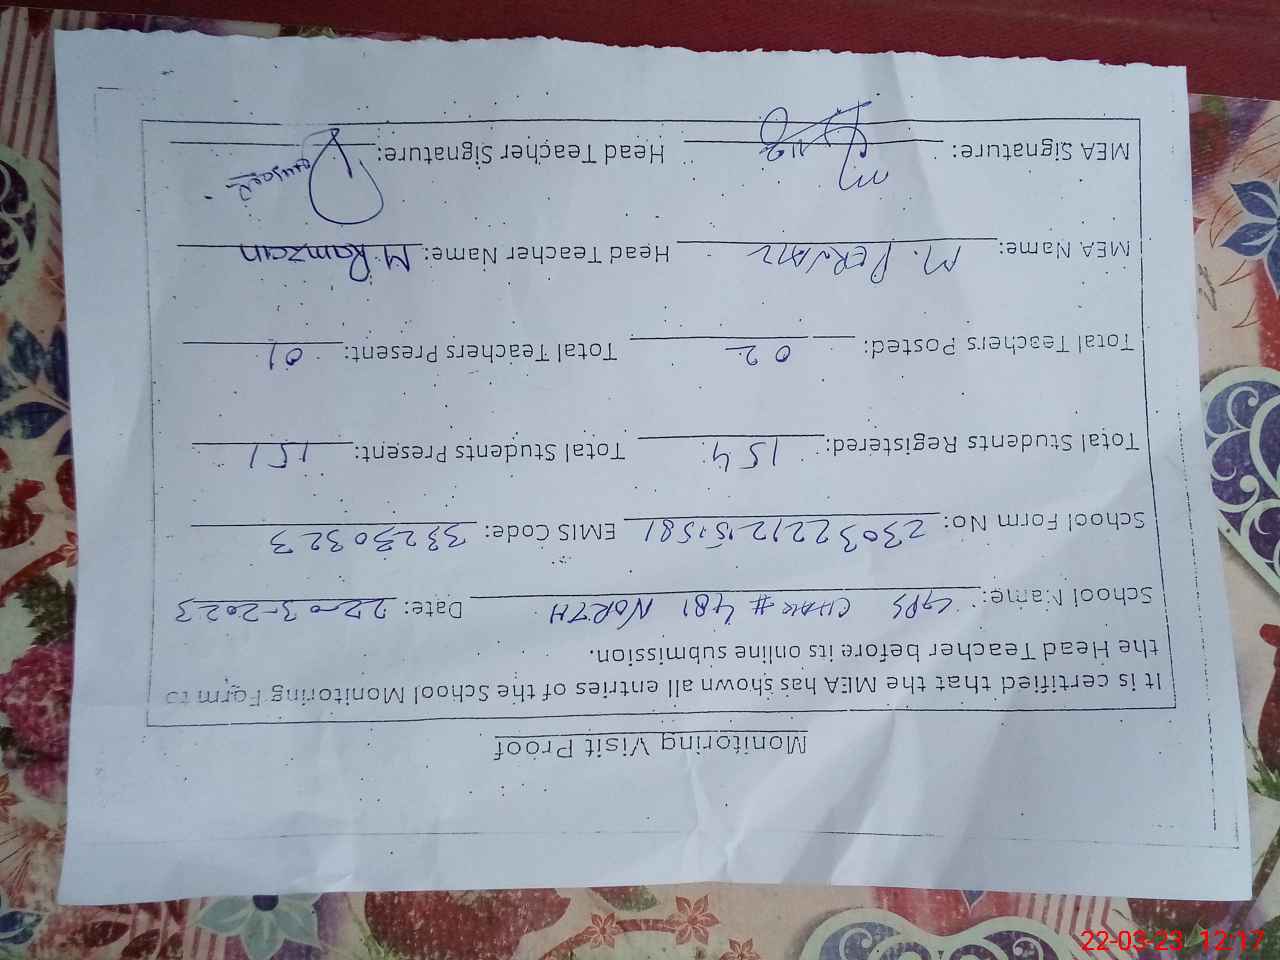 Monitoring Visit Proof
It is certified that the MEA has shown all entries of the School Monitoring Form to
the Head Teacher before its online submission.
School Name: GPS CHAK # 481 NORTH Date: 22-03-2023
School Form No: 23032212151581 EMIS Code: 33230323
Total Students Registered: 154 Total Students Present: 151
Total Teachers Posted: 02 Total Teachers Present: 01
MEA Name: M. PERVAIZ Head Teacher Name: M. Ramzan
MEA Signature: Head Teacher Signature:
22-03-23 12:17